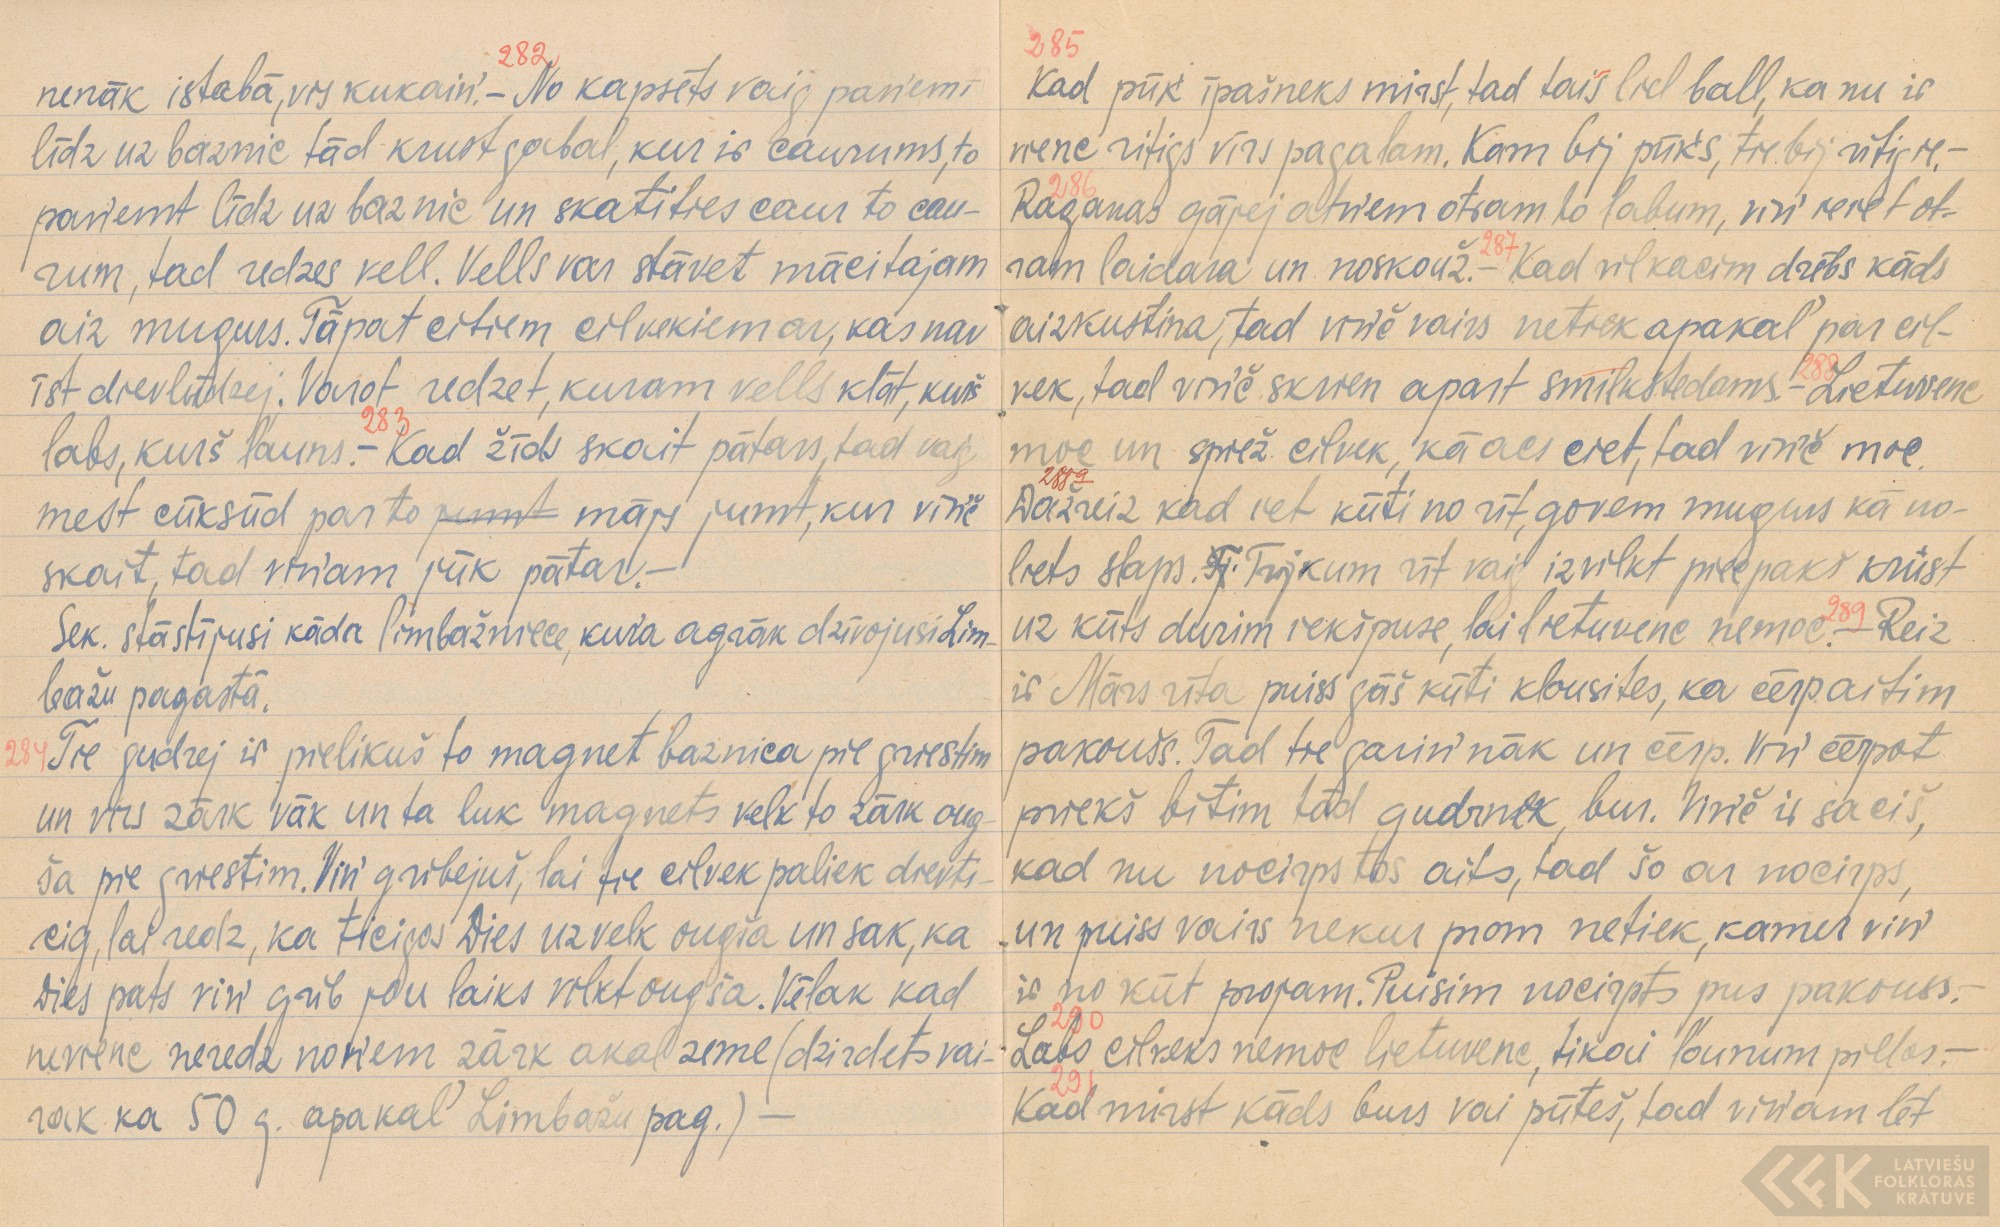 282
nenāk istabā, vis kukaiņ'. – No kapsēts vaig paņemt
līdz uz baznic tād krust gabal, kur ir caurums, to
paņemt līdz uz baznic un skatities caur to cau-
rum, tad redzes vell. Vells var stāvet mācitajam
aiz mugurs. Tāpat citiem cilvekiem ar, kas nav
īst dievlūdzej. Varot redzet, kuram vells klāt, kurš
labs, kurš l'auns. – 283 Kad žīds skait pātars, tad vaig
mest cūksūd par to jumt mājs jumt, kur viņč
skait, tad viņam jūk pātar. –
Sek. stāstījusi kāda limbažniece, kuŗa agrāk dzīvojusi Lim-
bažu pagastā.
284 Tie gudrej ir pielikuš to magnet baznica pie griestim
un virs zārk vāk un ta luk magnets velk to zārk oug-
ša pie griestim. Viņ' gribejuš, lai tie cilvek paliek dievti-
cig, lai redz, ka ticigos Dies uzvelk ougša un sak, ka
Dies pats viņ' grib jou laiks vilkt ougša. Vēlak kad
neviene neredz noņem zārk akal zeme (dzirdets vai-
rak ka 50 g. apakal' Limbažu pag.) –
285
Kad pūķ īpašneks mirst, tad taiš liel ball, ka nu ir
viene ritigs virs pagalam. Kam bij pūķs, tie bij ritig ie. –
286
Raganas gājej atņiem otram to labum, viņ' ieiet ot-
ram laidara un noskouž. – 287 Kad vilkacim drēbs kāds
aizkustina, tad viņč vairs netiek apakal' par cil-
vek, tad viņč skrien apart smilkstedams. – 288 Lietuvene
moc un spiež cilvek, kā aes ciet, tad viņč moc.
2889
Dažreiz kad iet kūti no rīt, govem mugurs kā no-
liets slaps. Trijkum rīt vaig izvilkt pieepakš krūst
uz kūts durim iekšpuse, lai lietuvene nemoc. – 289 Reiz
ir Mārs rīta puiss gāš kūti klousites, ka cērp aitim
pakoušs. Tad tie gariņ' nāk un cērp. Viņ' cērpot
prieks bītim tād gudrnek, bur. Viņč ir saciš,
kad nu nocirps tos aits, tad šo ar nocirps,
un puiss vairs nekur prom netiek, kamer viņ'
ir no kūt projam. Puisim nocirpts pus pakouss. –
290
Labs cilveks nemoc lietuvene, tikai l'aunum pillos. –
291
Kad mirst kāds burs vai pūteš, tad viņam lēt
LATVIEŠU
FOLKLORAS
KRĀTUVE